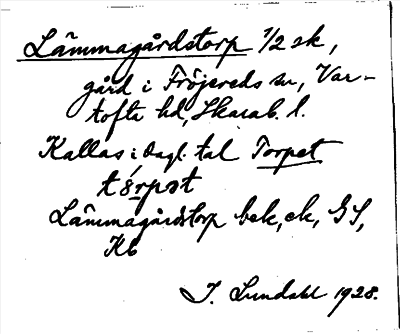 Lämmagårdstorp 1/2 sk,
gård i Fröjereds sn, Var-
tofta hd, Skarab. l.
Kallas i dagl. tal Torpet
tórpət
Lämmagårdstorp bek, ek, GS,
Kb
J. Lundahl 1928.